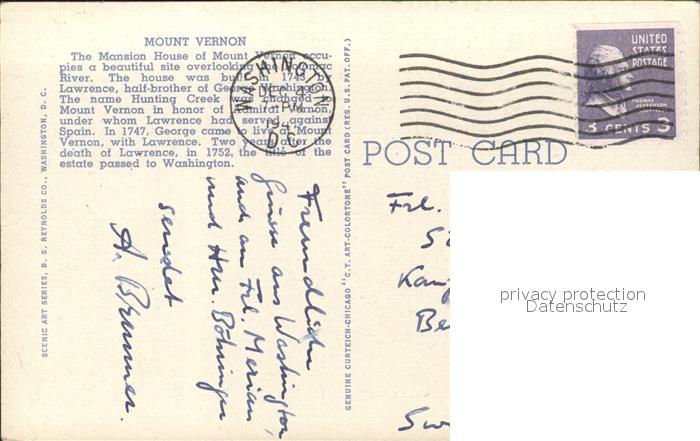 MOUNT VERNON
The Mansion House of Mount Vernon occu-
pies a beautiful site overlooking the Potomac
River. The house was built in 1743 by
Lawrence, half-brother of George Washington.
The name Hunting Creek was changed to
Mount Vernon in honor of Admiral Vernon,
under whom Lawrence had served against
Spain. In 1747, George came to live at Mount
Vernon, with Lawrence. Two years after the
death of Lawrence, in 1752, the title of the
estate passed to Washington.
SCENIC ART SERIES, B. S. REYNOLDS CO., WASHINGTON, D. C.
WASHINGTON
DEC 4
PM
194
D.C.
UNITED
STATES
POSTAGE
THOMAS
JEFFERSON
3 CENTS 3
POST CARD
GENUINE CURTEICH-CHICAGO "C.T. ART-COLORTONE" POST CARD (REG. U. S. PAT. OFF.)
Freundlichen
Grüsse aus Washington,
auch an Frl. Merian
und Hrn. Böhringer
sendet
A. Brunner.
Frl.
Be
Sw
privacy protection
Datenschutz